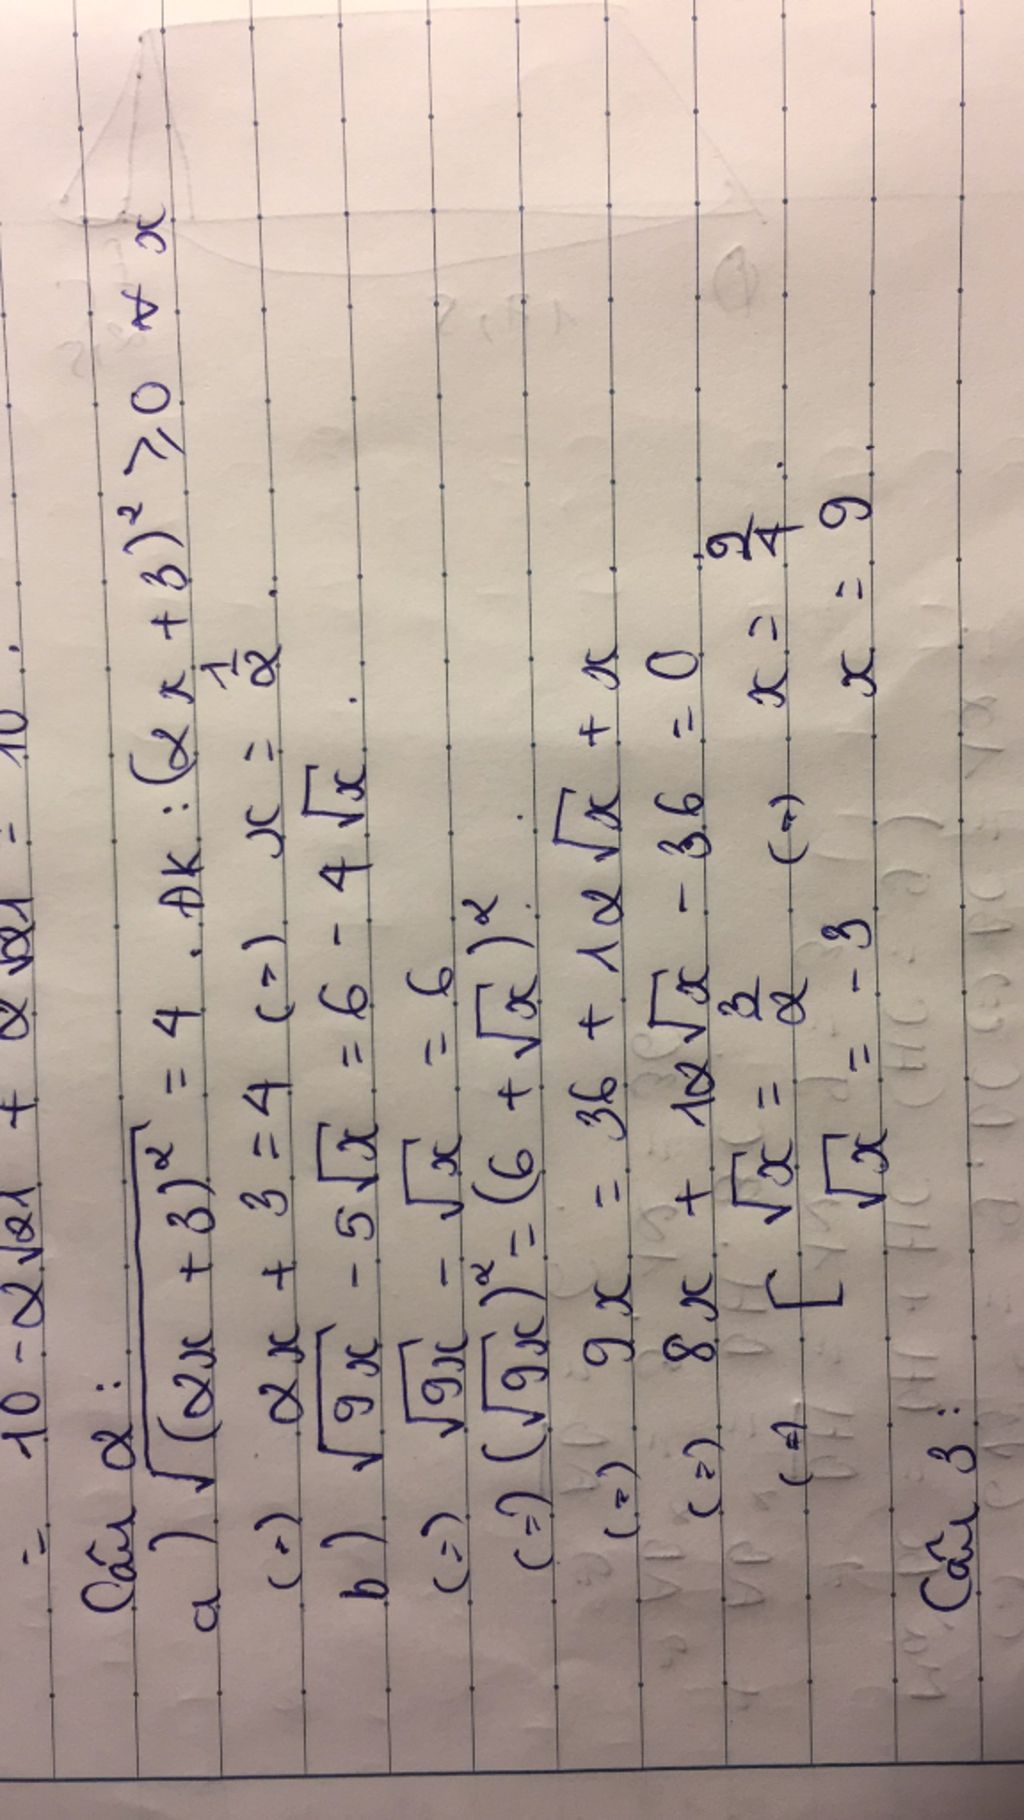 = 10 - 2√21 + 2√21 = 10.
Câu 2:
a) √(2x + 3)² = 4. ĐK: (2x + 3)² ⩾ 0 ∀ x
(=) 2x + 3 = 4 (=) x = 1/2.
b) √9x - 5√x = 6 - 4√x.
(=) √9x - √x = 6
(=) (√9x)² = (6 + √x)².
(=) 9x = 36 + 12√x + x
(=) 8x + 12√x - 36 = 0
(=) [ √x = 3/2 (=) x = 9/4.
√x = -3 x = 9.
Câu 3: